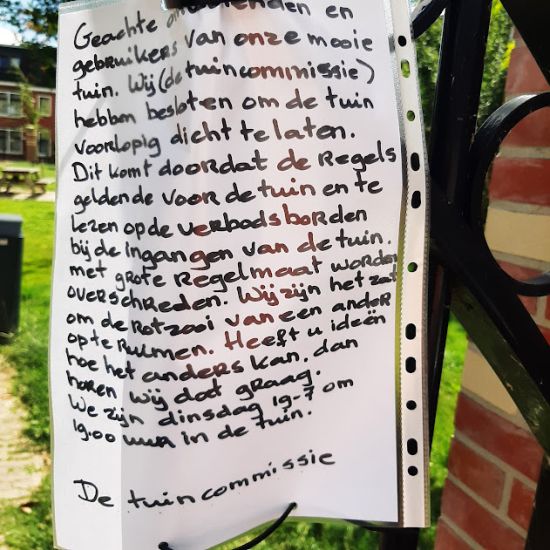 Geachte omwonenden en
gebruikers van onze mooie
tuin. Wij (de tuincommissie)
hebben besloten om de tuin
voorlopig dicht te laten.
Dit komt doordat de Regels
geldende voor de tuin en te
lezen op de verbodsborden
bij de ingangen van de tuin.
met grote Regelmaat worden
overschreden. Wij zijn het zat
om de rotzooi van een ander
op te ruimen. Heeft u ideeën
hoe het anders kan, dan
horen wij dat graag.
We zijn dinsdag 19-7 om
19.00 uur in de tuin.
De tuincommissie